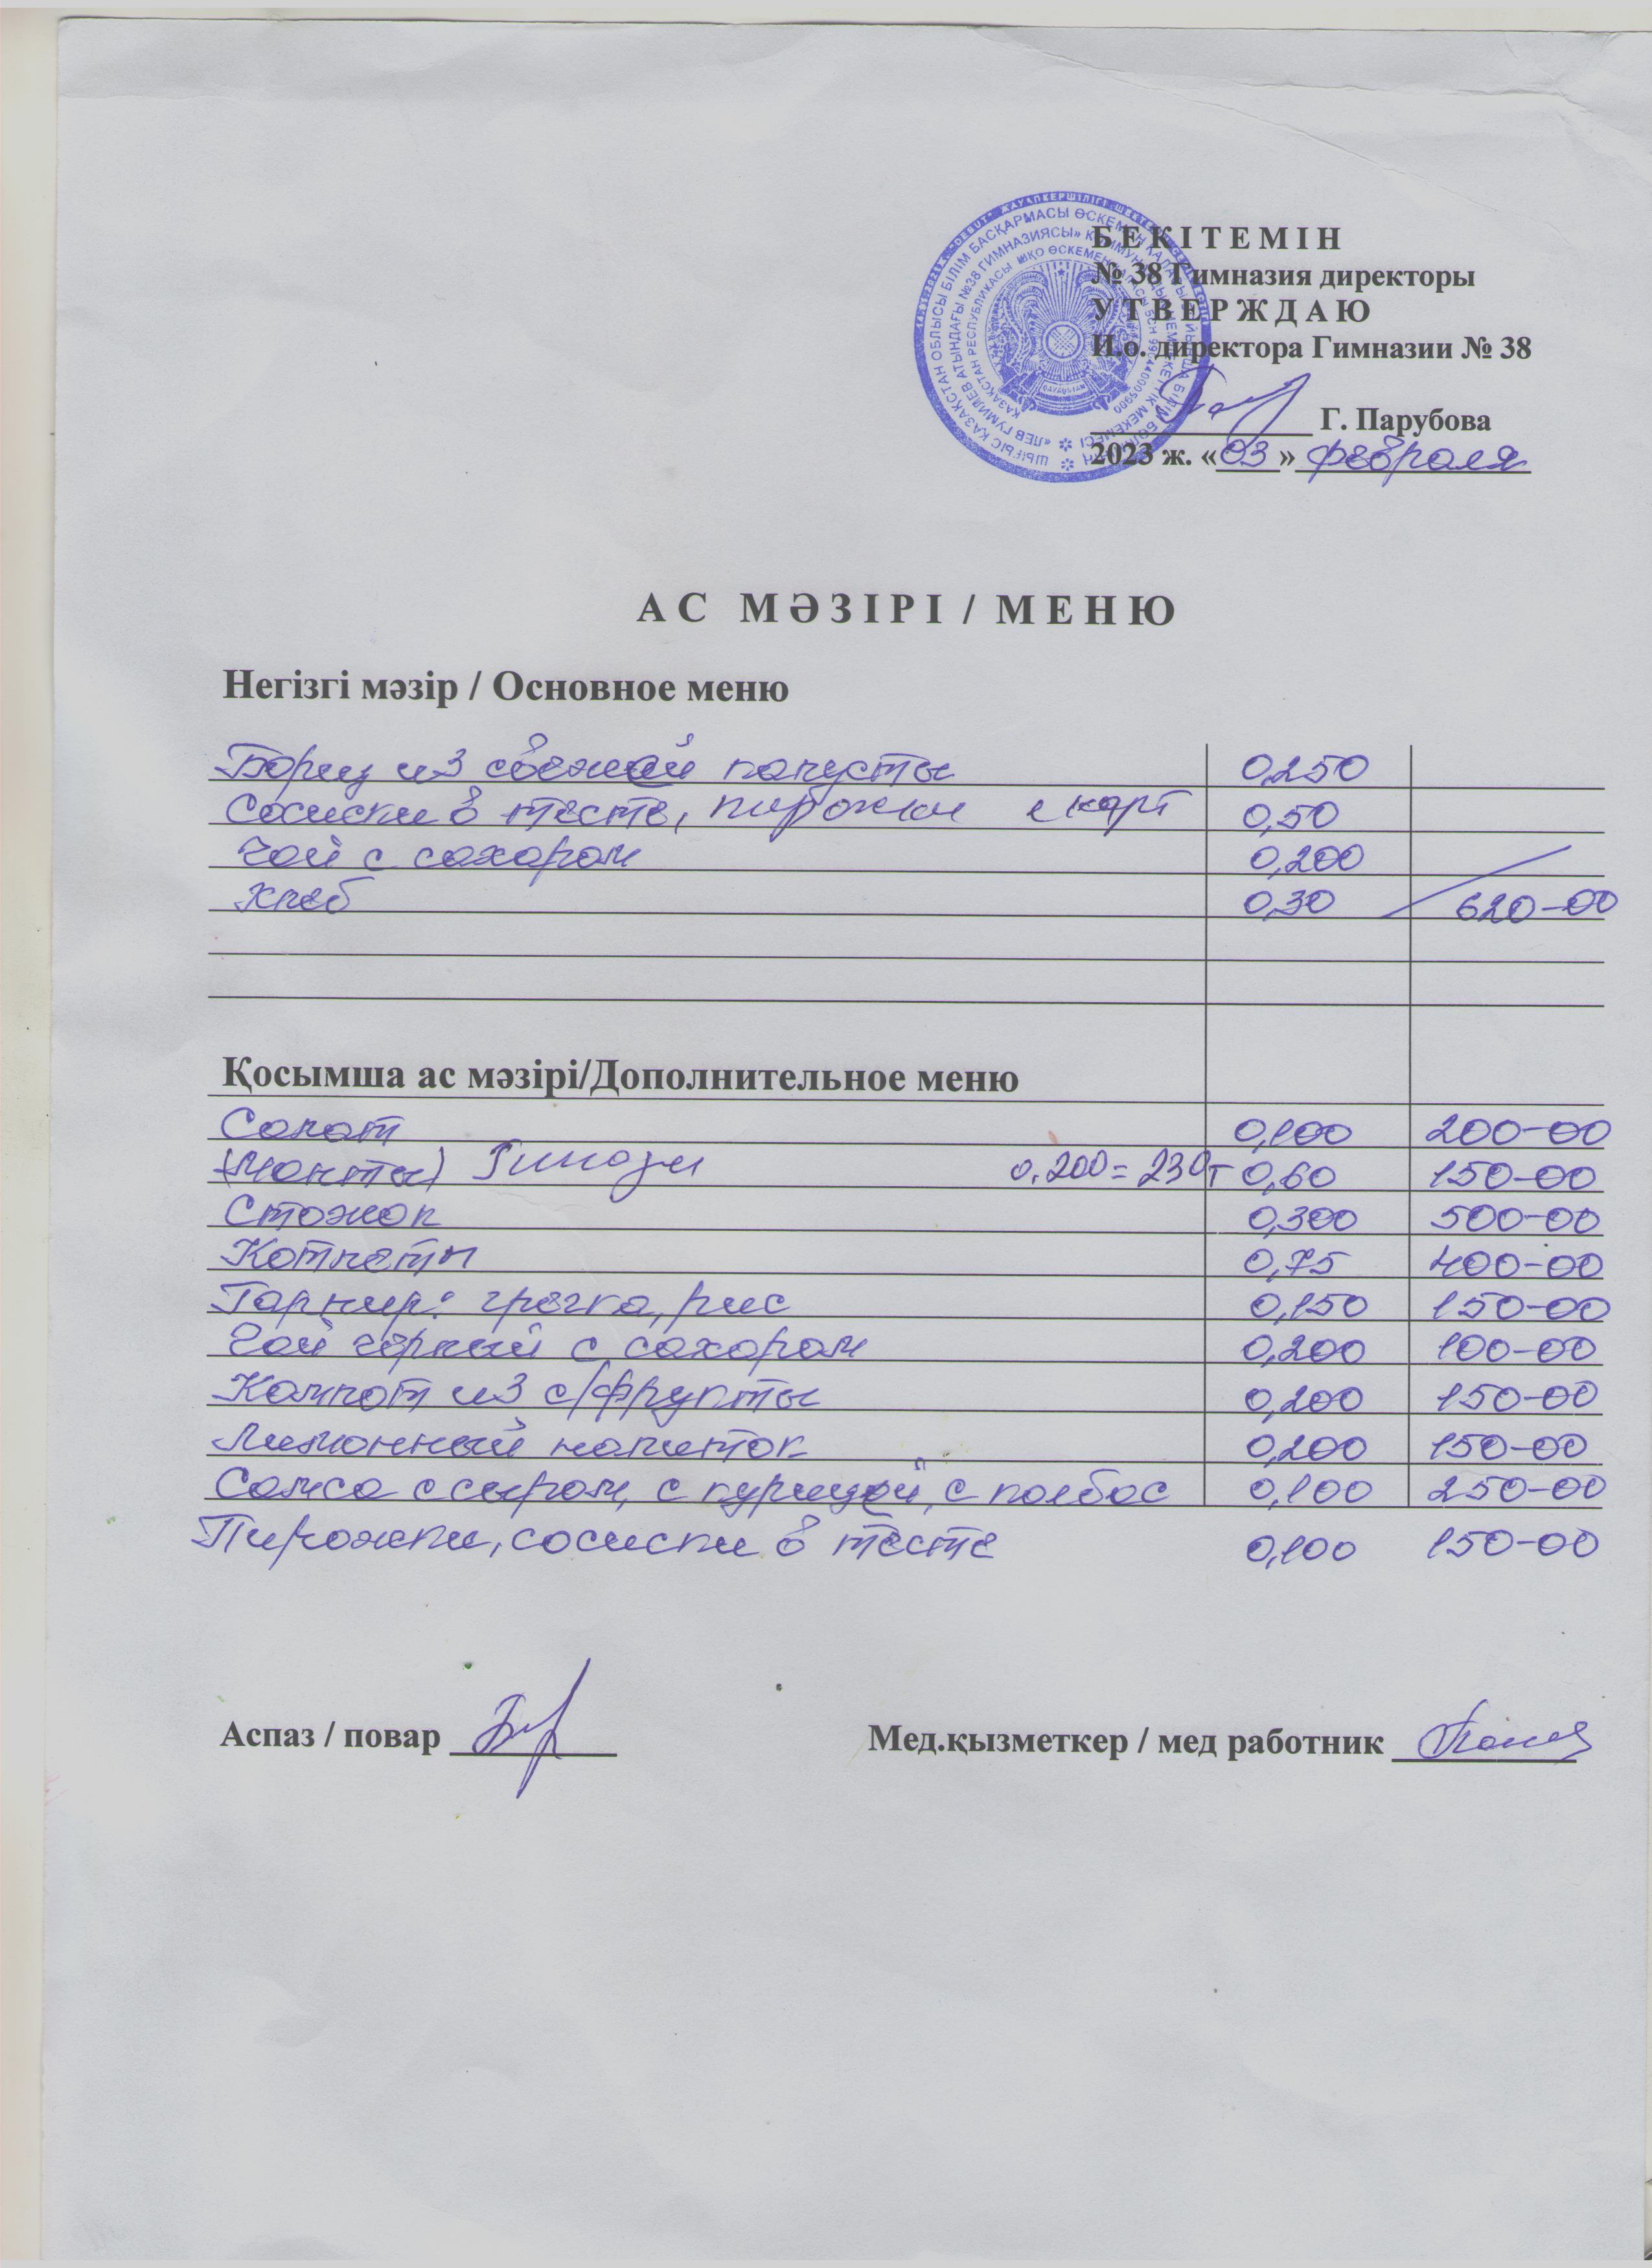 БЕКІТЕМІН
№ 38 Гимназия директоры
УТВЕРЖДАЮ
И.о. директора Гимназии № 38
Г. Парубова
2023 ж. «03» февраля
АС МӘЗІРІ / МЕНЮ
Негізгі мәзір / Основное меню
Борщ из свежей капусты 0,250
Сосиски в тесте, пирожки с карт 0,50
Чай с сахаром 0,200
Хлеб 0,30 620-00
Қосымша ас мәзірі/Дополнительное меню
Салат 0,100 200-00
(Манты) 0.200=230т 0,60 150-00
Стожок 0,300 500-00
Котлеты 0,75 400-00
Гарнир: гречка, рис 0,150 150-00
Чай чёрный с сахаром 0,200 100-00
Компот из с/фрукты 0,200 150-00
Лимонный напиток 0,200 150-00
Самса с сыром, с курицей, с колбас 0,100 250-00
Пирожки, сосиски в тесте 0,100 150-00
Аспаз / повар Мед.қызметкер / мед работник